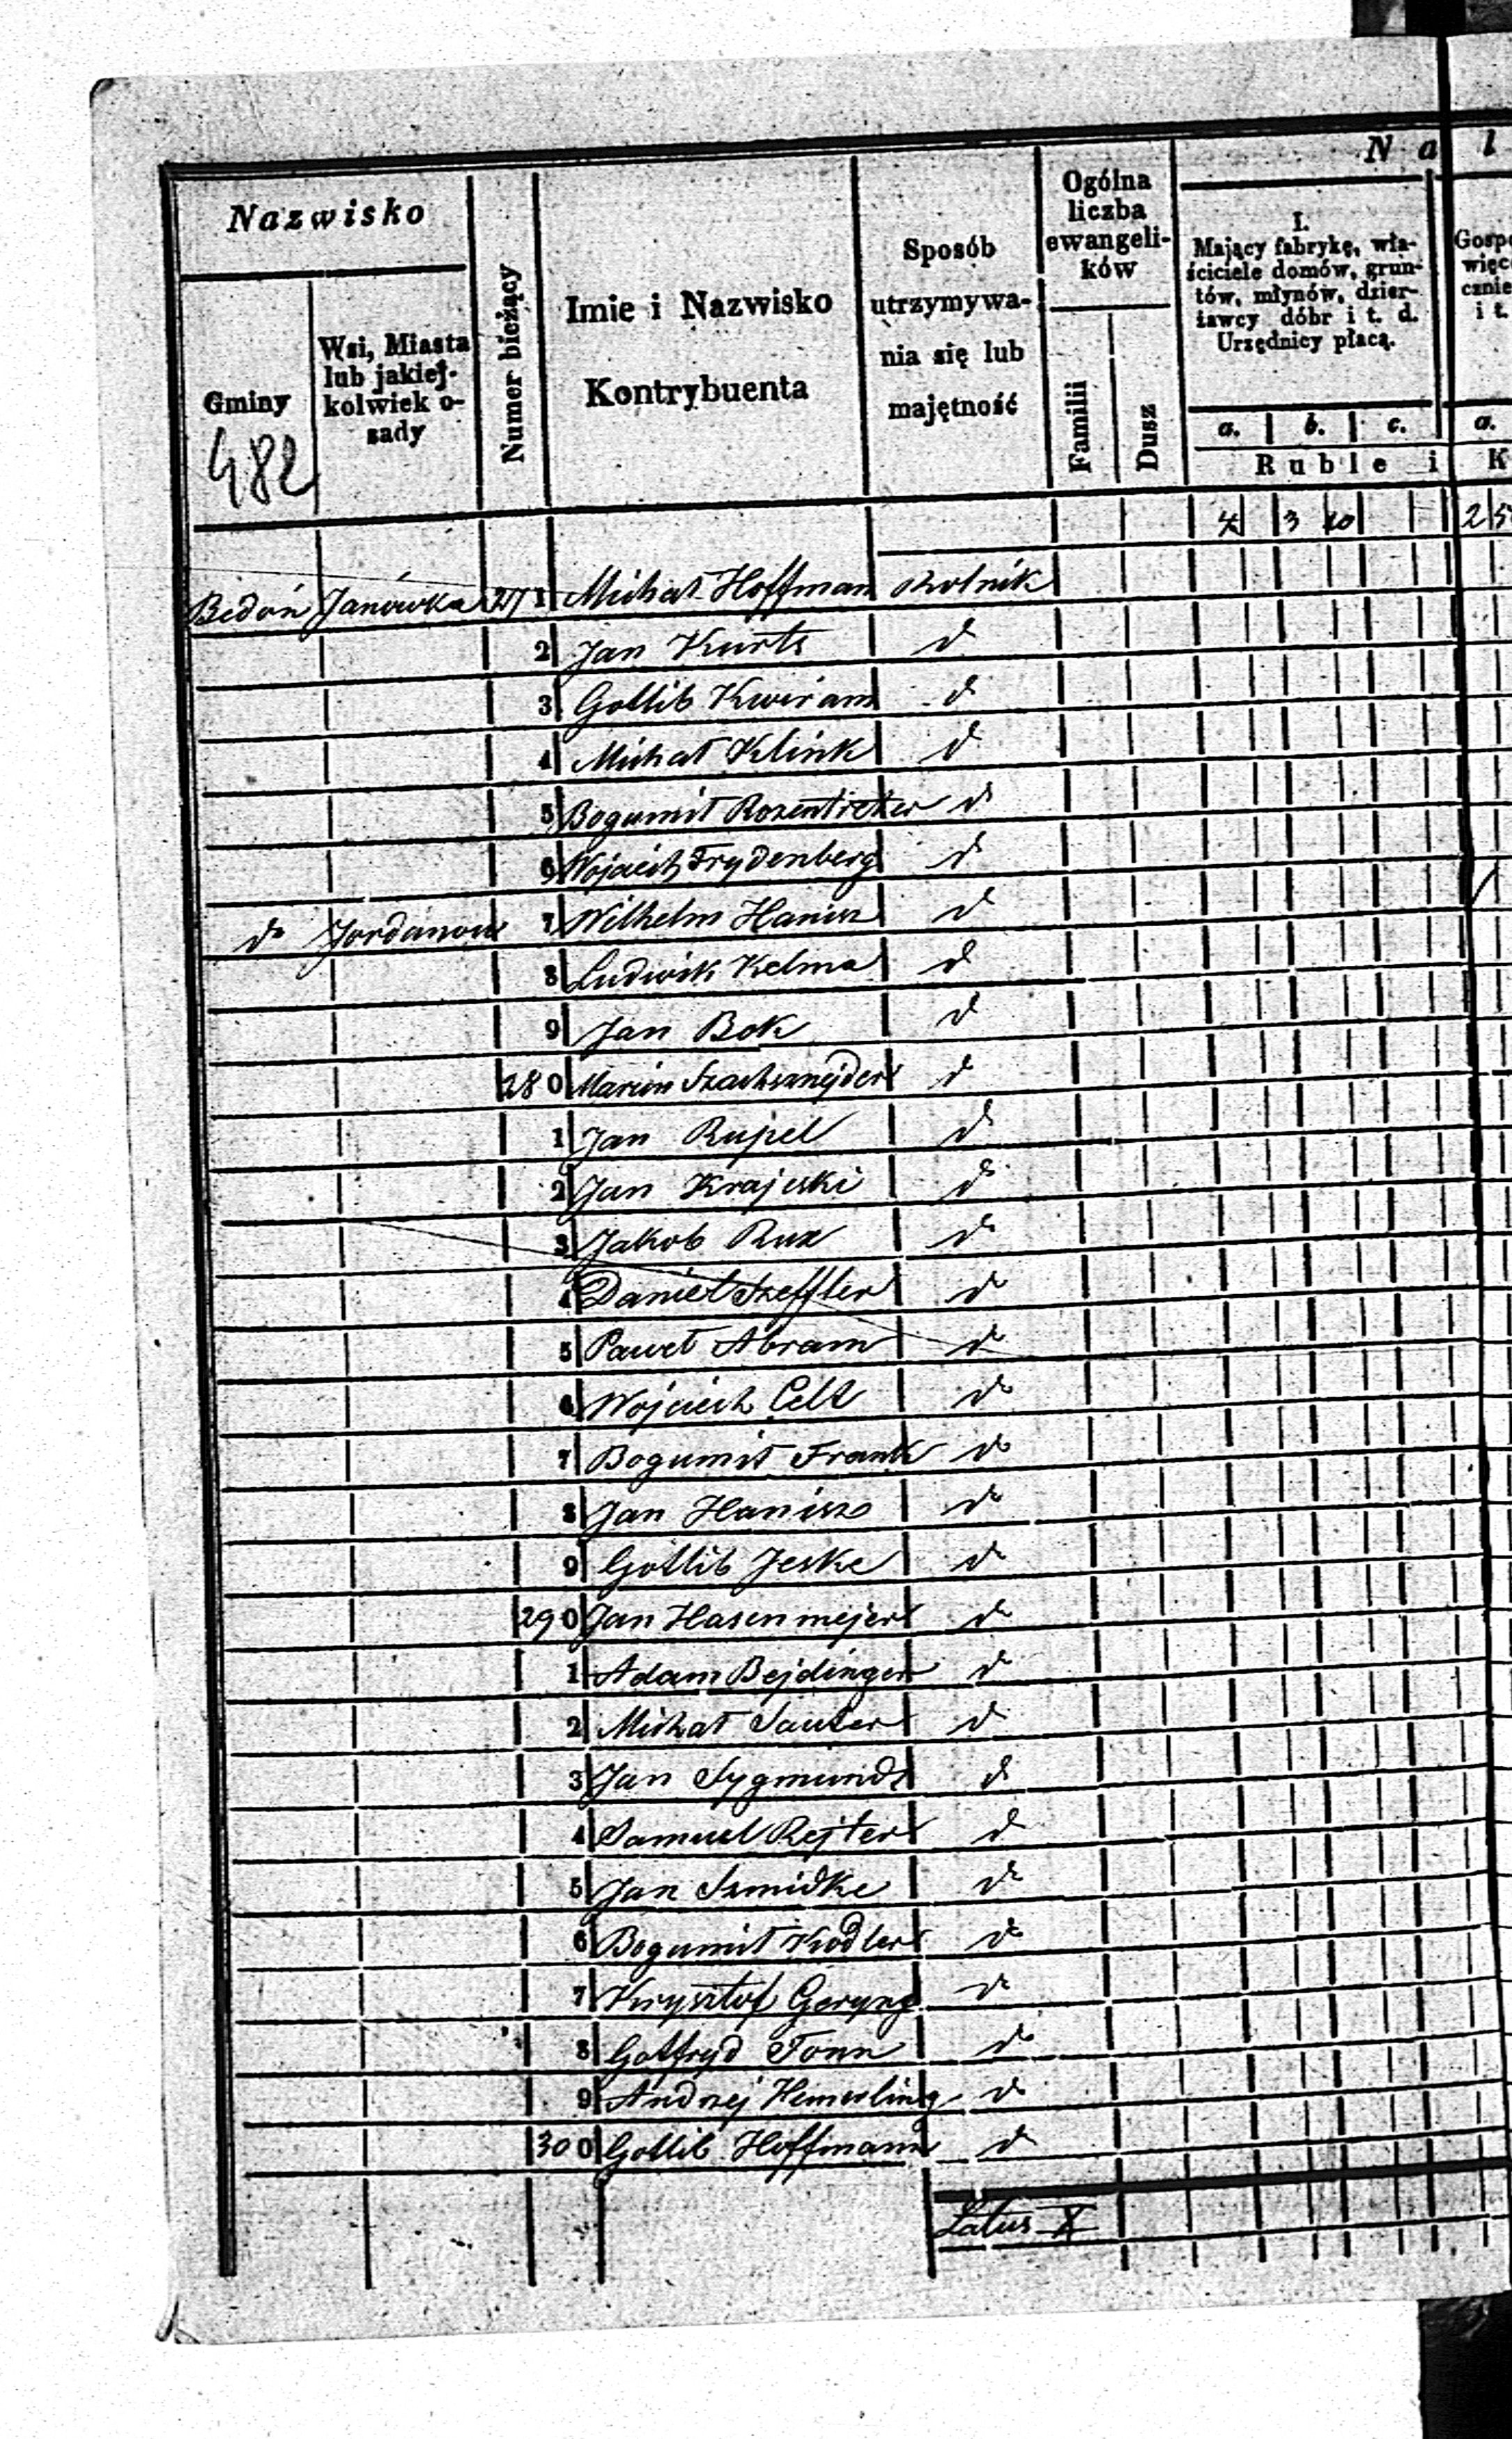 N a l
Nazwisko
Gminy
Wsi, Miasta lub jakiej-kolwiek o-sady
Numer bieżący
Imie i Nazwisko Kontrybuenta
Sposób utrzymywa-nia się lub majętność
Ogólna liczba ewangeli-ków
Familii
Dusz
I. Mający fabrykę, wła-ściciele domów, grun-tów, młynów, dzier-żawcy dóbr i t. d. Urzędnicy płacą.
a. b. c. a.
Ruble i K
482
4 3 10 25
Bedoń Janówka 271 Michał Hoffman Rolnik
2 Jan Kurts d
3 Gottlib Kwiram d
4 Michał Klink d
5 Bogumił Rozentreter d
6 Wojciech Frydenberg d
do Jordanow 7 Wilhelm Hanisz d
8 Ludwik Kelma d
9 Jan Bok d
280 Marcin Szachsznejder d
1 Jan Rupel d
2 Jan Krajeski do
3 Jakob Rux do
4 Daniel Szeffler do
5 Paweł Abram do
6 Wojciech Celt do
7 Bogumił Frank do
8 Jan Hanisz do
9 Gottlib Jeske do
290 Jan Hasenmejer do
1 Adam Bejdinger d
2 Michał Sauter d
3 Jan Sygmund d
4 Samuel Rejter d
5 Jan Szmidke do
6 Bogumił Kodler do
7 Krysztof Geryng do
8 Gotfryd Tonn do
9 Andrzej Hemerling do
300 Gottlib Hoffmann d
Latus X